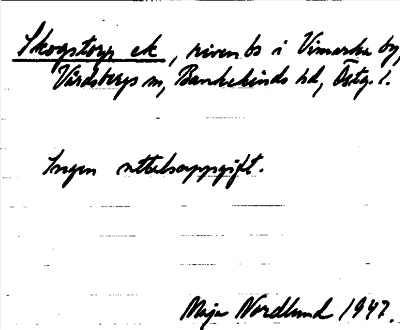 Skogstorp ek, riven bs i Vimarka by,
Vårdsbergs sn, Bankekinds hd, Östg. l.
Ingen uttalsuppgift.
Maja Nordlund 1947.